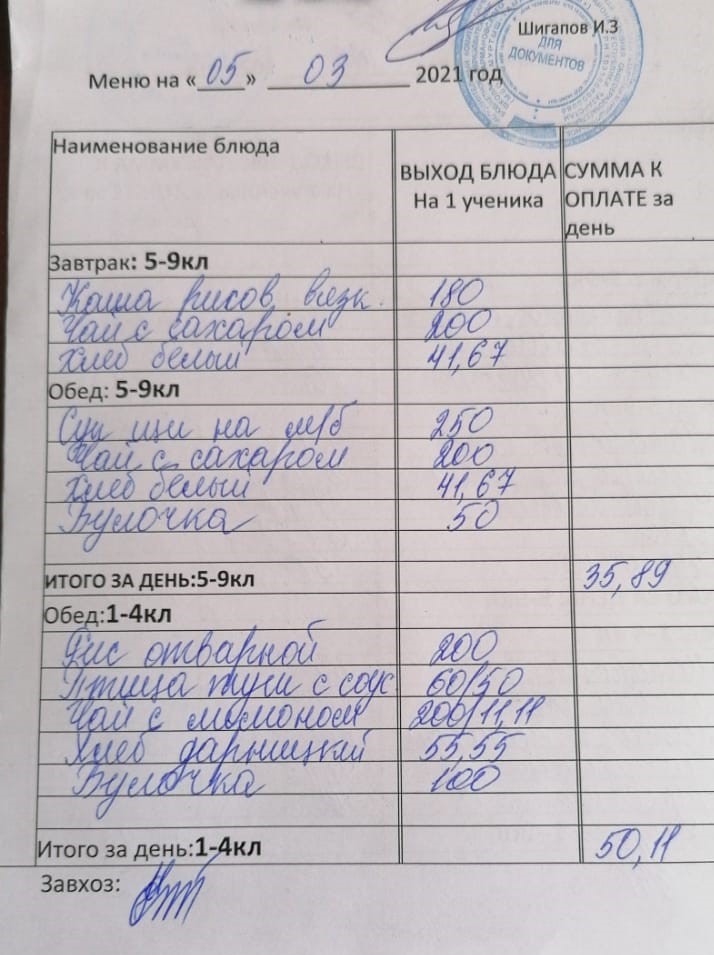 Шигапов И.З
ДЛЯ
ДОКУМЕНТОВ
Меню на «05» 03 2021 год
Наименование блюда ВЫХОД БЛЮДА На 1 ученика СУММА К ОПЛАТЕ за день
Завтрак: 5-9кл
Каша рисов. вязк. 180
Чай с сахаром 200
Хлеб белый 41,67
Обед: 5-9кл
Суп щи на м/б 250
Чай с сахаром 200
Хлеб белый 41,67
Булочка 50
ИТОГО ЗА ДЕНЬ:5-9кл 35,89
Обед:1-4кл
Рис отварной 200
Птица туш с соус. 60/50
Чай с молоком 200/11,11
Хлеб дарницкий 55,55
Булочка 100
Итого за день:1-4кл 50,11
Завхоз: